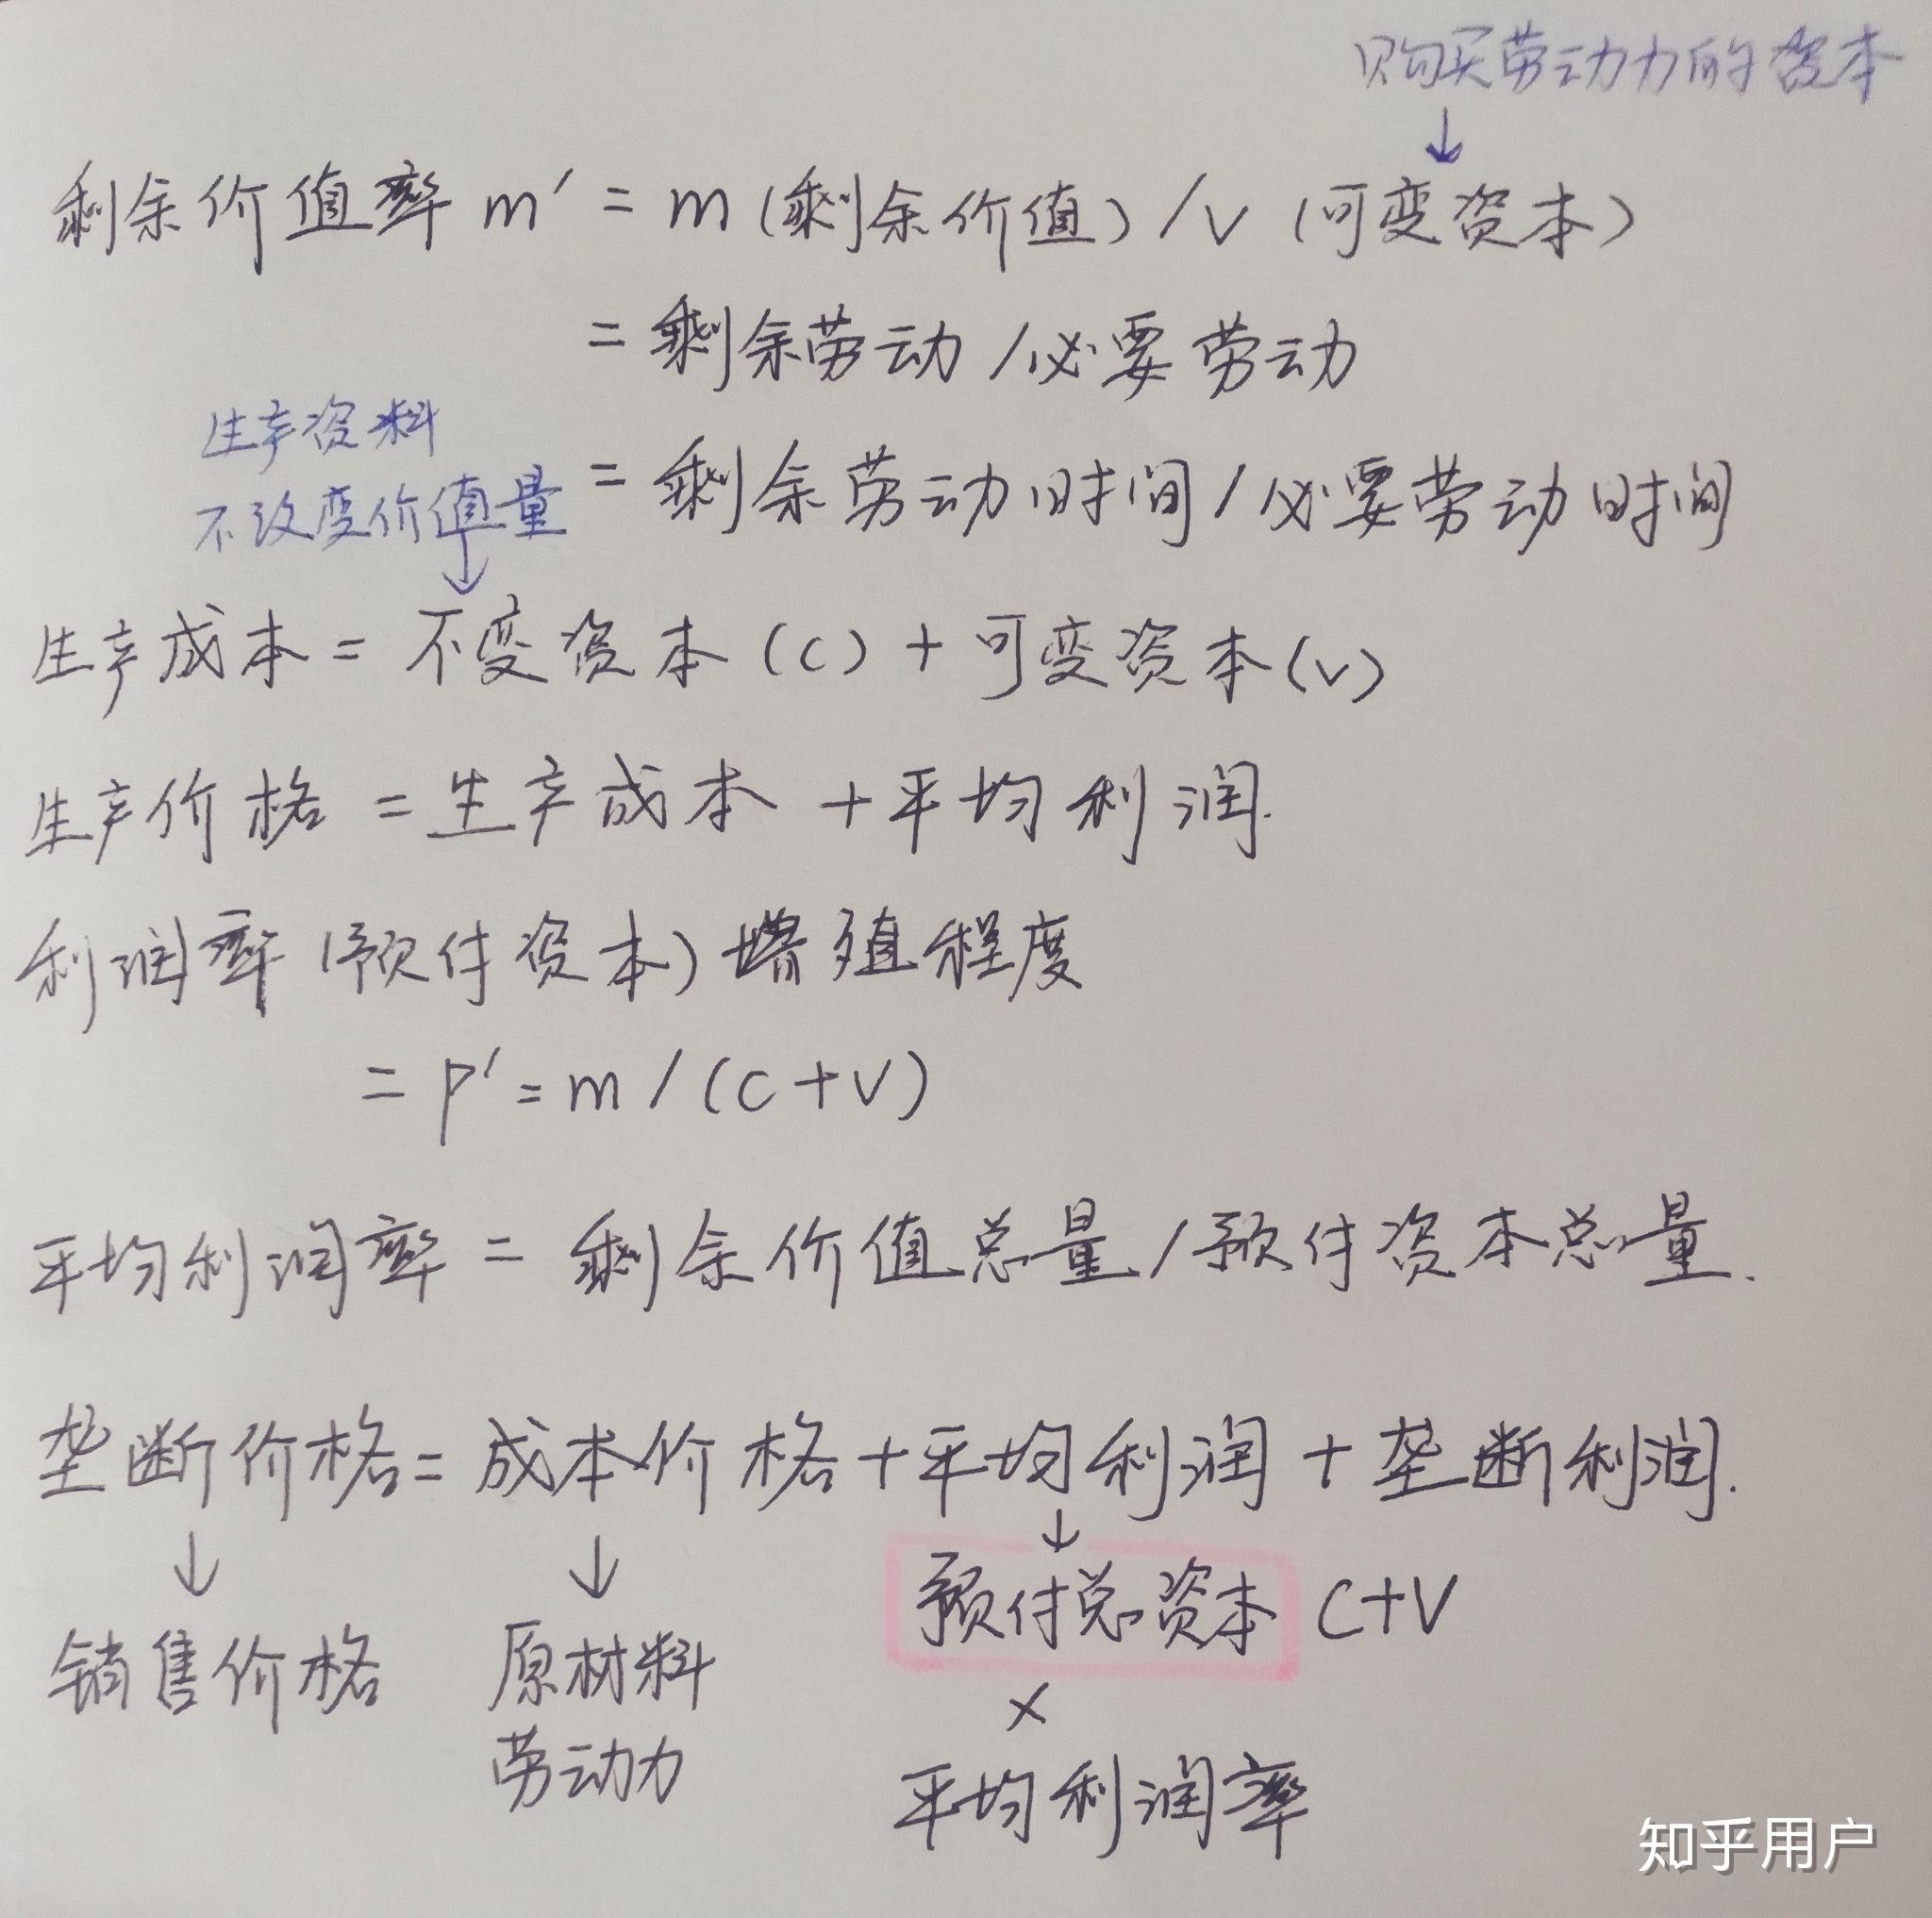 购买劳动力的资本
↓
剩余价值率 m′ = m (剩余价值) / v (可变资本)
= 剩余劳动 / 必要劳动
生产资料
= 剩余劳动时间 / 必要劳动时间
不改变价值量
↓
生产成本 = 不变资本 (c) + 可变资本 (v)
生产价格 = 生产成本 + 平均利润.
利润率 (预付资本) 增殖程度
= p′ = m / (c + v)
平均利润率 = 剩余价值总量 / 预付资本总量.
垄断价格 = 成本价格 + 平均利润 + 垄断利润.
↓ ↓ ↓
预付总资本 C+V
销售价格 原材料
×
劳动力
平均利润率
知乎用户